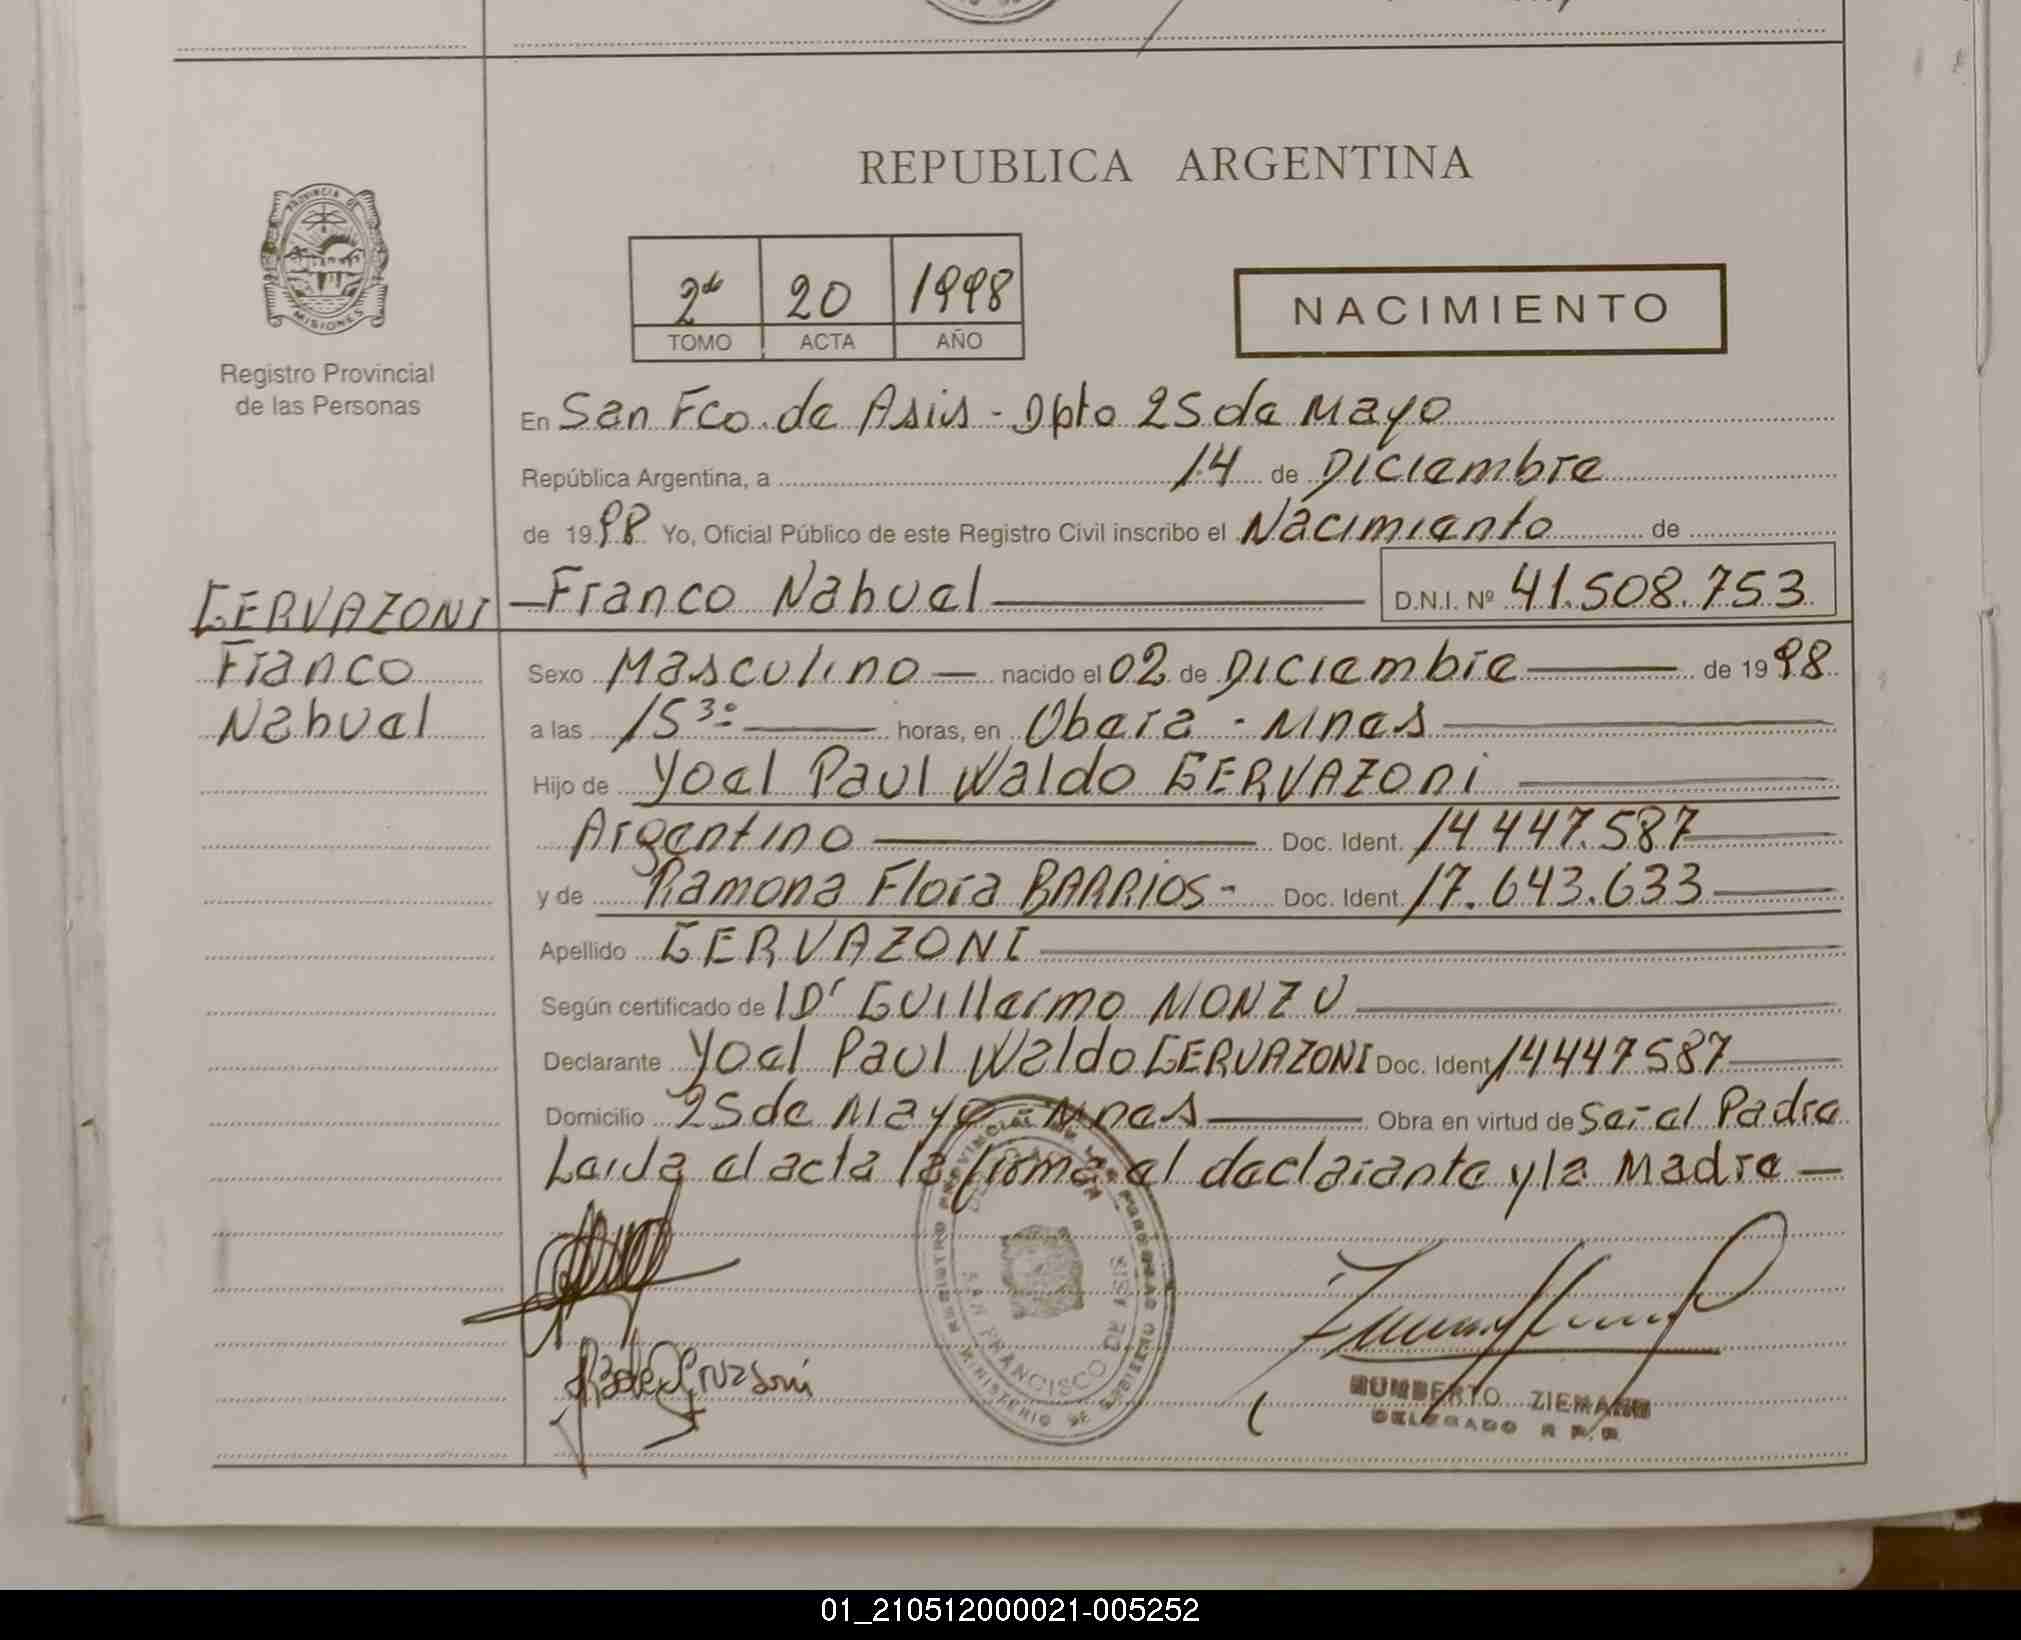 REPUBLICA ARGENTINA
PROVINCIA DE
MISIONES
Registro Provincial
de las Personas
2do 20 1998
TOMO ACTA AÑO
NACIMIENTO
En San Fco. de Asis - Dpto 25 de Mayo
República Argentina, a 14 de Diciembre
de 1998 Yo, Oficial Público de este Registro Civil inscribo el Nacimiento de
GERVAZONI
Franco
Nahuel
Franco Nahuel D.N.I. Nº 41.508.753
Sexo Masculino nacido el 02 de Diciembre de 1998
a las 15 30 horas, en Obera - Mnes
Hijo de Yoel Paul Waldo GERVAZONI
Argentino Doc. Ident. 14 447.587
y de Ramona Flora BARRIOS - Doc. Ident. 17.643.633
Apellido GERVAZONI
Según certificado de Dr Guillermo MONZU
Declarante Yoel Paul Waldo GERVAZONI Doc. Ident 14447587
Domicilio 25 de Mayo Mnes Obra en virtud de Ser el Padre
Leida el acta la firma el declarante y la Madre
REGISTRO PROVINCIAL DE LAS PERSONAS
DELEGACION
SAN FRANCISCO DE ASIS
MINISTERIO DE GOBIERNO
HUMBERTO ZIEMANN
DELEGADO R.P.P.
01_210512000021-005252